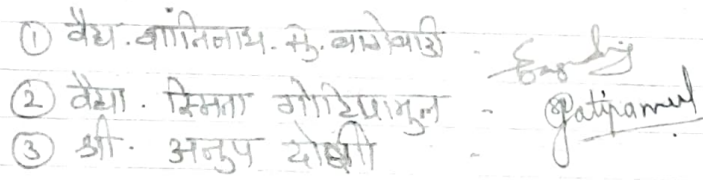 ① वैद्य. शांतिनाथ. सु. बागेवाडी -
② वैद्या. स्मिता गोटिपामुल - Gatipamul
③ श्री. अनुप दोषी -